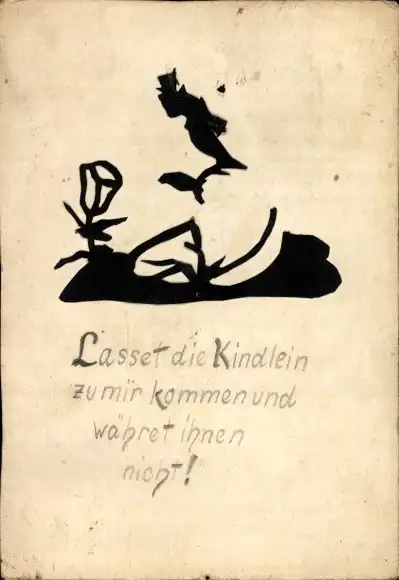 Lasset die Kindlein
zu mir kommen und
währet ihnen
nicht!